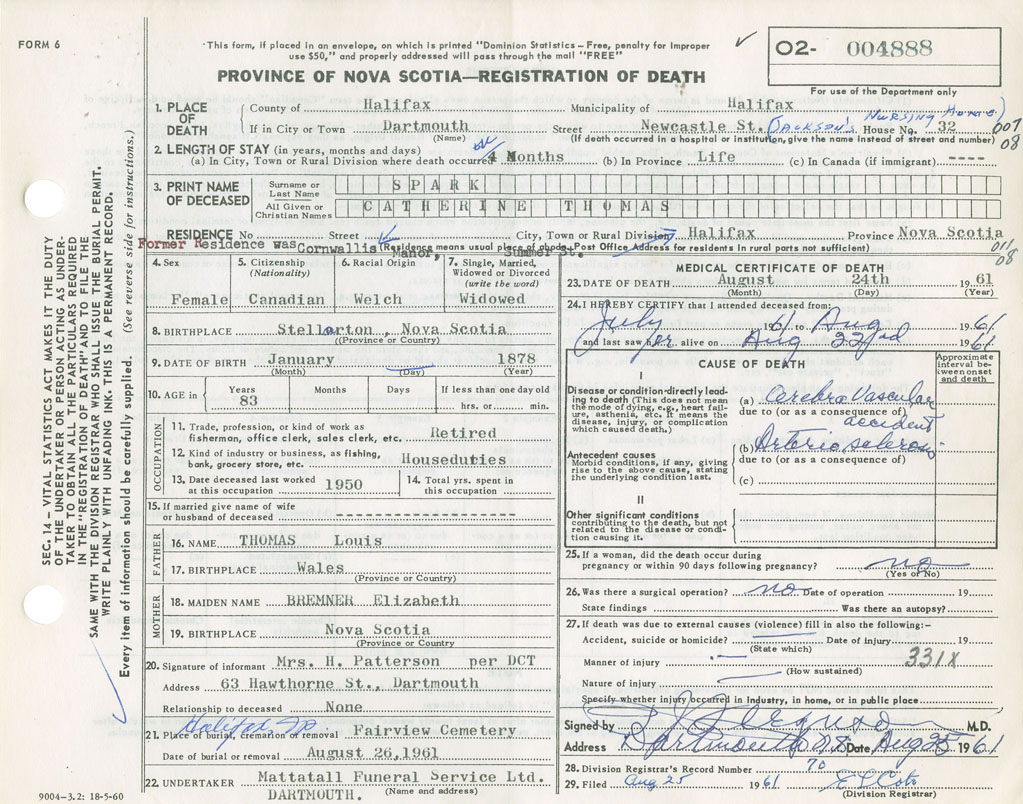 FORM 6
This form, if placed in an envelope, on which is printed "Dominion Statistics – Free, penalty for improper
use $50," and properly addressed will pass through the mail "FREE"
PROVINCE OF NOVA SCOTIA—REGISTRATION OF DEATH
02- 004888
For use of the Department only
1. PLACE OF DEATH
County of Halifax Municipality of Halifax
If in City or Town Dartmouth Street Newcastle St. (Jackson's Nursing Home) House No. 32
007
08
(Name) (If death occurred in a hospital or institution, give the name instead of street and number)
2. LENGTH OF STAY (in years, months and days)
(a) In City, Town or Rural Division where death occurred 4 Months (b) In Province Life (c) In Canada (if immigrant) ----
3. PRINT NAME OF DECEASED
Surname or Last Name SPARK
All Given or Christian Names CATHERINE THOMAS
RESIDENCE No Street City, Town or Rural Division Halifax Province Nova Scotia
Former Residence was Cornwallis Manor, Summer St. (Residence means usual place of abode. Post Office Address for residents in rural parts not sufficient)
011/
08
4. Sex Female
5. Citizenship (Nationality) Canadian
6. Racial Origin Welch
7. Single, Married, Widowed or Divorced (write the word) Widowed
8. BIRTHPLACE Stellarton, Nova Scotia
(Province or Country)
9. DATE OF BIRTH January 1878
(Month) (Day) (Year)
10. AGE in Years 83 Months Days If less than one day old
hrs. or min.
OCCUPATION
11. Trade, profession, or kind of work as
fisherman, office clerk, sales clerk, etc. Retired
12. Kind of industry or business, as fishing,
bank, grocery store, etc. Houseduties
13. Date deceased last worked
at this occupation 1950
14. Total yrs. spent in
this occupation
15. If married give name of wife
or husband of deceased ---------------
FATHER
16. NAME THOMAS Louis
17. BIRTHPLACE Wales
(Province or Country)
MOTHER
18. MAIDEN NAME BREMNER Elizabeth
19. BIRTHPLACE Nova Scotia
(Province or Country)
20. Signature of informant Mrs. H. Patterson per DCT
Address 63 Hawthorne St., Dartmouth
Relationship to deceased None
Halifax
21. Place of burial, cremation or removal Fairview Cemetery
Date of burial or removal August 26,1961
22. UNDERTAKER Mattatall Funeral Service Ltd.
DARTMOUTH. (Name and address)
MEDICAL CERTIFICATE OF DEATH
23. DATE OF DEATH August 24th 1961
(Month) (Day) (Year)
24. I HEREBY CERTIFY that I attended deceased from:
July 1961 to Aug 1961
and last saw her alive on Aug 22rd 1961
CAUSE OF DEATH
Approximate interval between onset and death
I
Disease or condition directly leading to death (This does not mean the mode of dying, e.g., heart failure, asthenia, etc. It means the disease, injury, or complication which caused death.)
(a) Cerebro Vascular accident
due to (or as a consequence of)
Antecedent causes
Morbid conditions, if any, giving rise to the above cause, stating the underlying condition last.
(b)
due to (or as a consequence of)
(c)
II
Other significant conditions
contributing to the death, but not related to the disease or condition causing it.
25. If a woman, did the death occur during
pregnancy or within 90 days following pregnancy? no
(Yes or No)
26. Was there a surgical operation? no Date of operation 19
State findings Was there an autopsy?
27. If death was due to external causes (violence) fill in also the following:–
Accident, suicide or homicide? Date of injury 19
(State which)
Manner of injury 331X
(How sustained)
Nature of injury
Specify whether injury occurred in industry, in home, or in public place
Signed by M.D.
Address Dartmouth N.S. Date Aug 25 1961
28. Division Registrar's Record Number 70
29. Filed Aug 25 1961
(Division Registrar)
SEC. 14 – VITAL STATISTICS ACT MAKES IT THE DUTY
OF THE UNDERTAKER OR PERSON ACTING AS UNDER-
TAKER TO OBTAIN ALL THE PARTICULARS REQUIRED
IN THE "REGISTRATION OF DEATH" AND TO FILE THE
SAME WITH THE DIVISION REGISTRAR WHO SHALL ISSUE THE BURIAL PERMIT.
WRITE PLAINLY WITH UNFADING INK. THIS IS A PERMANENT RECORD.
Every item of information should be carefully supplied. (See reverse side for instructions.)
9004-3.2: 18-5-60